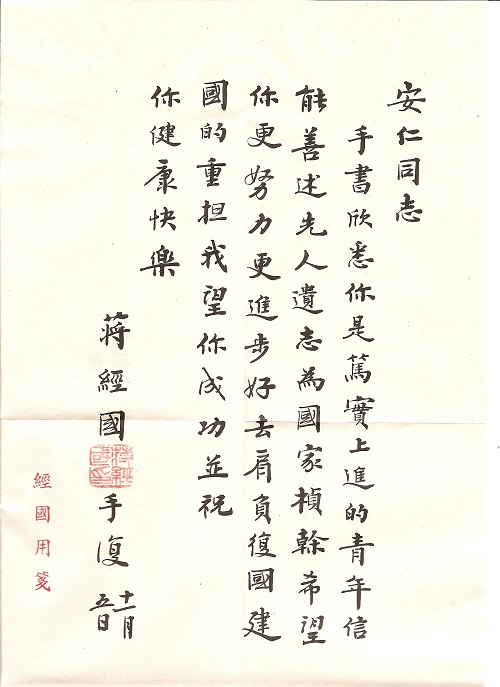 安仁同志
手書欣悉你是篤實上進的青年信
能善述先人遺志為國家楨榦希望
你更努力更進步好去肩負復國建
國的重担我望你成功並祝
你健康快樂
蔣經國手復
十一月
五日
經國用箋